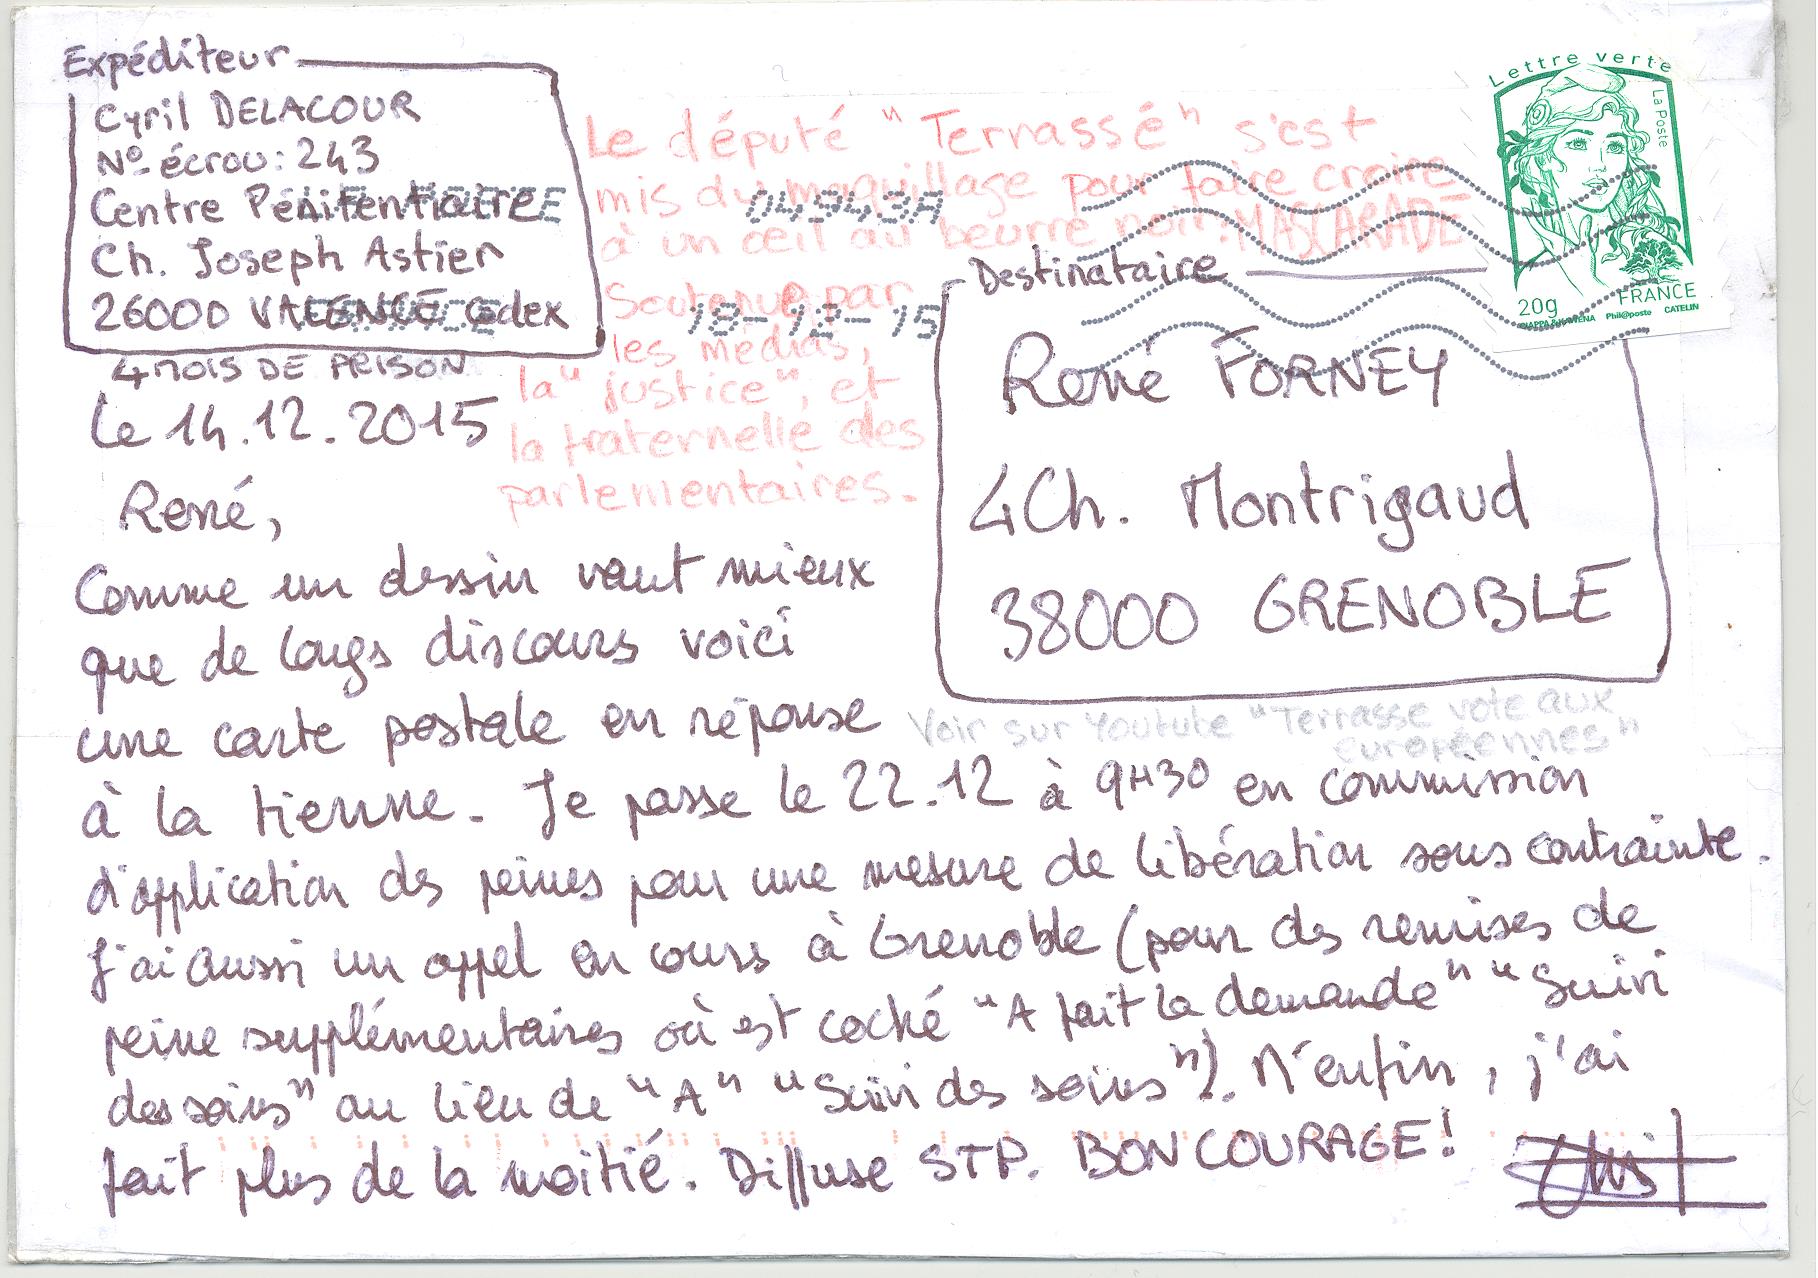 Expéditeur
Cyril DELACOUR
N° écrou: 243
Centre Pénitentiaire
Ch. Joseph Astier
26000 VALENCE cedex
4 MOIS DE PRISON
Le député "Terrassé" s'est
mis du maquillage pour faire croire
à un œil au beurre noir: MASCARADE
Soutenue par
les médias,
la "justice", et
la fraternelle des
parlementaires.
LA POSTE
04943A
FRANCE
18-12-15
Lettre verte
La Poste
20g
FRANCE
CIAPPA & KAWENA Phil@poste CATELIN
Destinataire
René FORNEY
4 Ch. Montrigaud
38000 GRENOBLE
Voir sur Youtute "Terrasse vote aux
européennes"
Le 14.12.2015
René,
Comme un dessin vaut mieux
que de longs discours voici
une carte postale en réponse
à la tienne. Je passe le 22.12 à 9H30 en commission
d'application des peines pour une mesure de libération sous contrainte.
J'ai aussi un appel en cours à Grenoble (pour des remises de
peine supplémentaires où est coché "A fait la demande" "Suivi
des soins" au lieu de "A" "Suivi des soins"). M'enfin, j'ai
fait plus de la moitié. Diffuse STP. BON COURAGE!